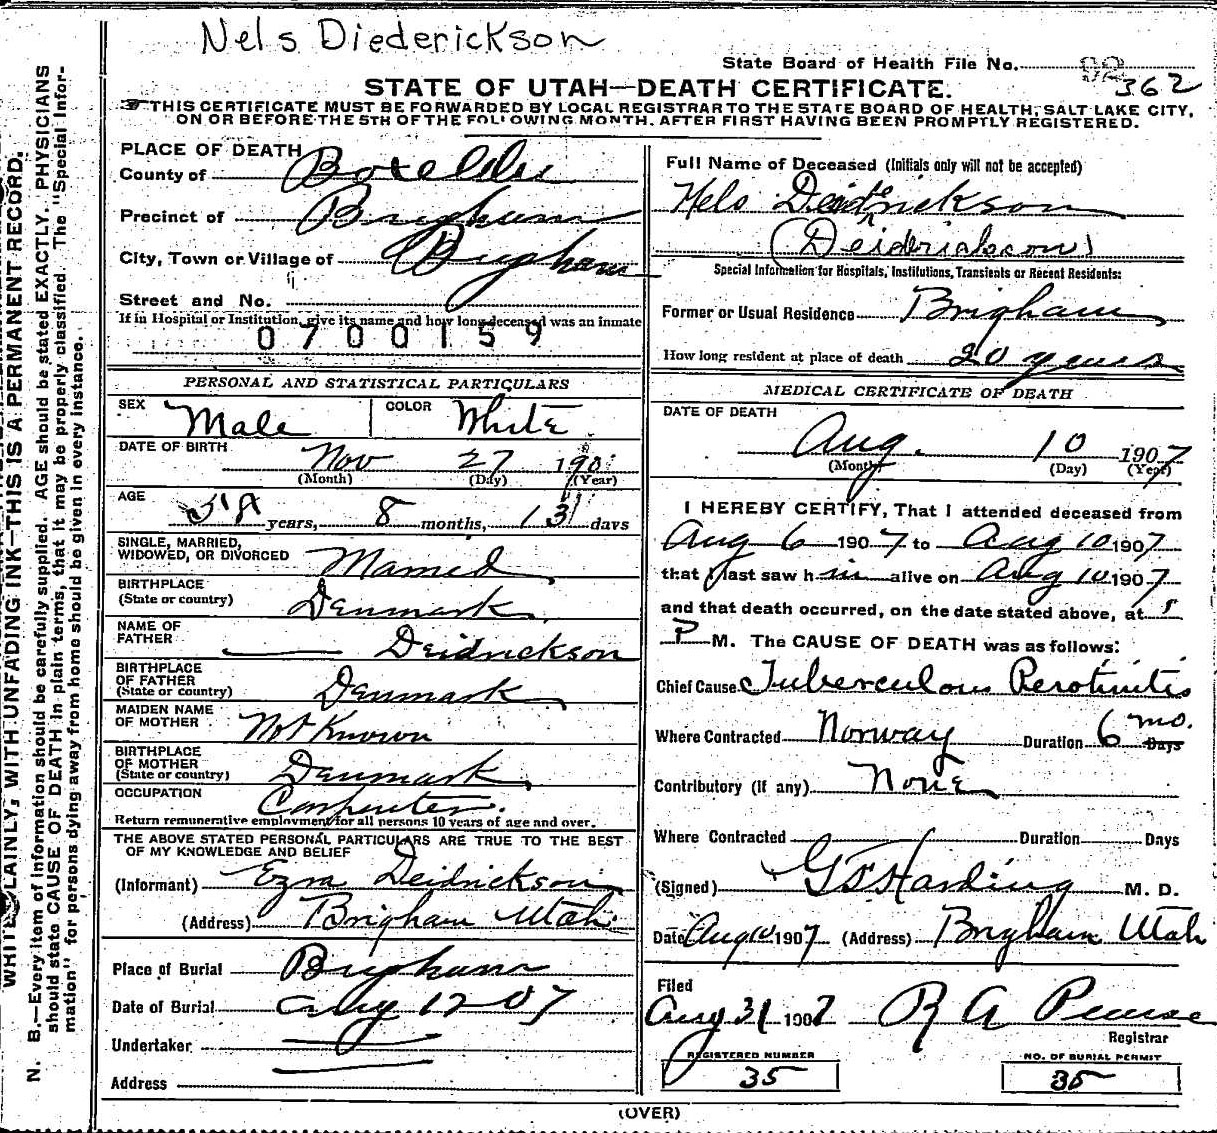 Nels Diederickson
State Board of Health File No. 362
STATE OF UTAH—DEATH CERTIFICATE.
THIS CERTIFICATE MUST BE FORWARDED BY LOCAL REGISTRAR TO THE STATE BOARD OF HEALTH, SALT LAKE CITY,
ON OR BEFORE THE 5TH OF THE FOLLOWING MONTH, AFTER FIRST HAVING BEEN PROMPTLY REGISTERED.
WRITE PLAINLY, WITH UNFADING INK—THIS IS A PERMANENT RECORD.
N. B.—Every item of information should be carefully supplied. AGE should be stated EXACTLY. PHYSICIANS
should state CAUSE OF DEATH in plain terms, that it may be properly classified. The "Special Infor-
mation" for persons dying away from home should be given in every instance.
PLACE OF DEATH
County of Boxelder
Precinct of Brigham
City, Town or Village of Brigham
Street and No.
If in Hospital or Institution, give its name and how long deceased was an inmate
0700159
PERSONAL AND STATISTICAL PARTICULARS
SEX Male COLOR White
DATE OF BIRTH Nov 27 190
(Month) (Day) (Year)
AGE years, 8 months, 13 days
SINGLE, MARRIED,
WIDOWED, OR DIVORCED Married
BIRTHPLACE
(State or country) Denmark
NAME OF
FATHER Deidrickson
BIRTHPLACE
OF FATHER
(State or country) Denmark
MAIDEN NAME
OF MOTHER Not Known
BIRTHPLACE
OF MOTHER
(State or country) Denmark
OCCUPATION Carpenter.
Return remunerative employment for all persons 10 years of age and over.
THE ABOVE STATED PERSONAL PARTICULARS ARE TRUE TO THE BEST
OF MY KNOWLEDGE AND BELIEF
(Informant) Ezra Deidrickson
(Address) Brigham Utah.
Place of Burial Brigham
Date of Burial Aug 12-07
Undertaker
Address
Full Name of Deceased (Initials only will not be accepted)
Nels Deidrickson
(Deiderickson)
Special Information for Hospitals, Institutions, Transients or Recent Residents:
Former or Usual Residence Brigham
How long resident at place of death 20 years
MEDICAL CERTIFICATE OF DEATH
DATE OF DEATH
Aug. 10 1907
(Month) (Day) (Year)
I HEREBY CERTIFY, That I attended deceased from
Aug 6 1907 to Aug 10 1907
that I last saw him alive on Aug 10 1907
and that death occurred, on the date stated above, at
P M. The CAUSE OF DEATH was as follows:
Chief Cause Tuberculous Perotinitis
Where Contracted Norway Duration 6 mo. Days
Contributory (if any) None
Where Contracted Duration Days
(Signed) Harding M. D.
Date Aug 10 1907 (Address) Brigham Utah
Filed
Aug 31 1907 R A Pearse
Registrar
REGISTERED NUMBER
35
NO. OF BURIAL PERMIT
35
(OVER)